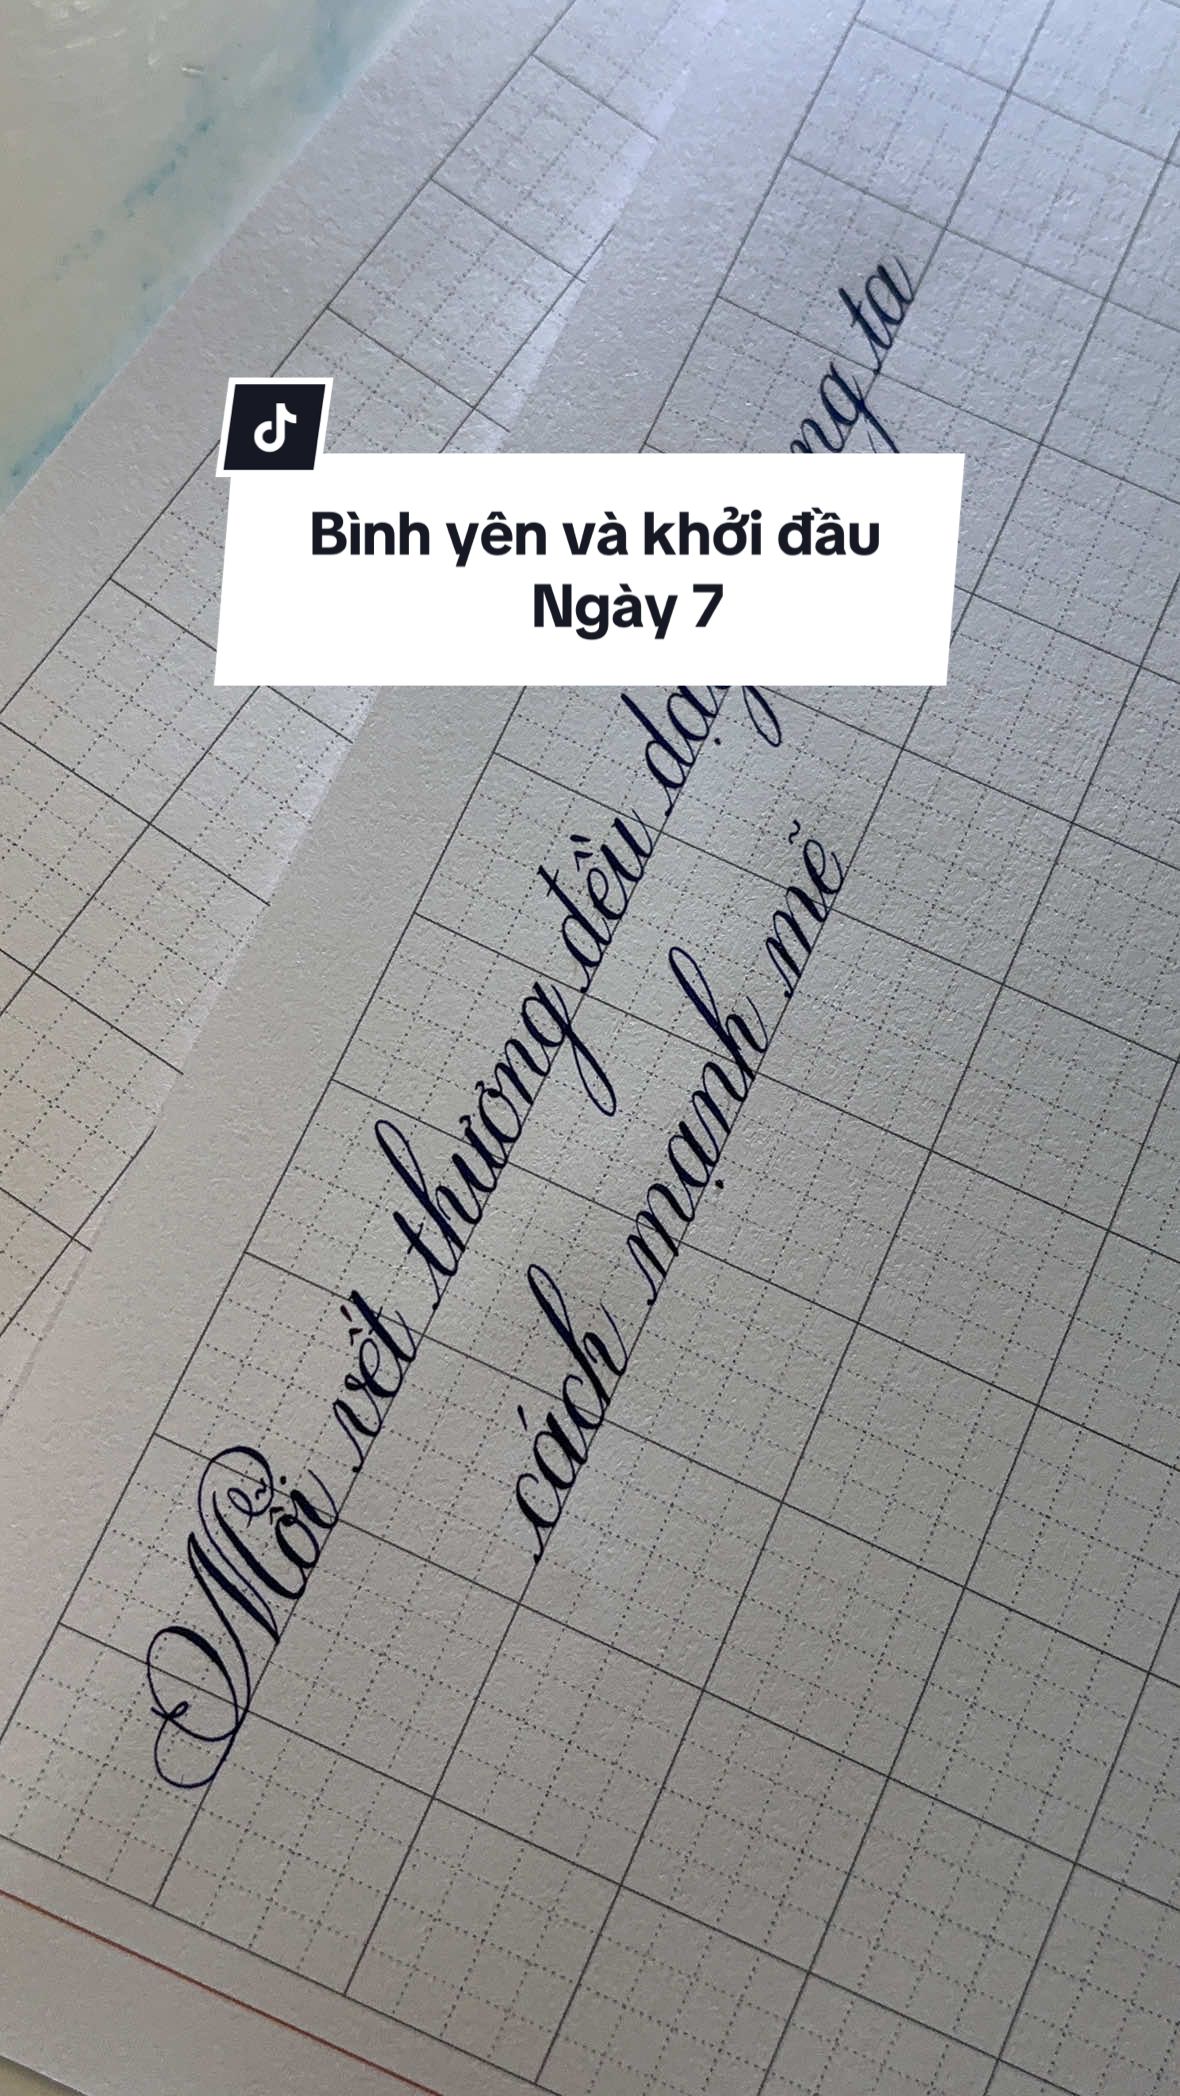 Bình yên và khởi đầu
Ngày 7
Mỗi vết thương đều ta
cách mạnh mẽ